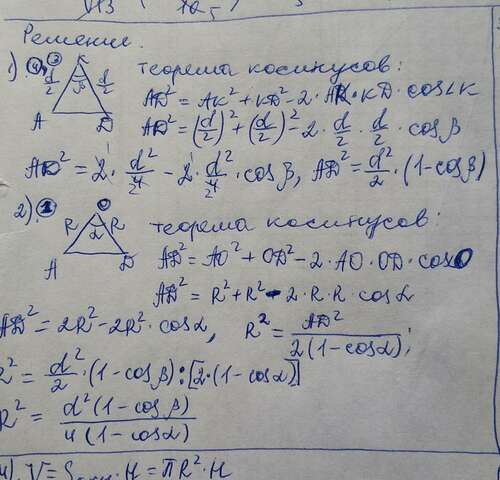 Решение.
1) K d/2 β d/2 A D теорема косинусов:
AD² = AK² + KD² - 2 · AK · KD · cos∠K
AD² = (d/2)² + (d/2)² - 2 · d/2 · d/2 · cos β
AD² = 2 · d²/4 - 2 · d²/4 · cos β, AD² = d²/2 · (1 - cos β)
2) O R R α A D теорема косинусов:
AD² = AO² + OD² - 2 · AO · OD · cos O
AD² = R² + R² - 2 · R · R · cos α
AD² = 2R² - 2R² · cos α, R² = AD²/2(1 - cos α);
R² = d²/2 · (1 - cos β) : [2 · (1 - cos α)]
R² = d²(1 - cos β)/4(1 - cos α)
H = πR² · H